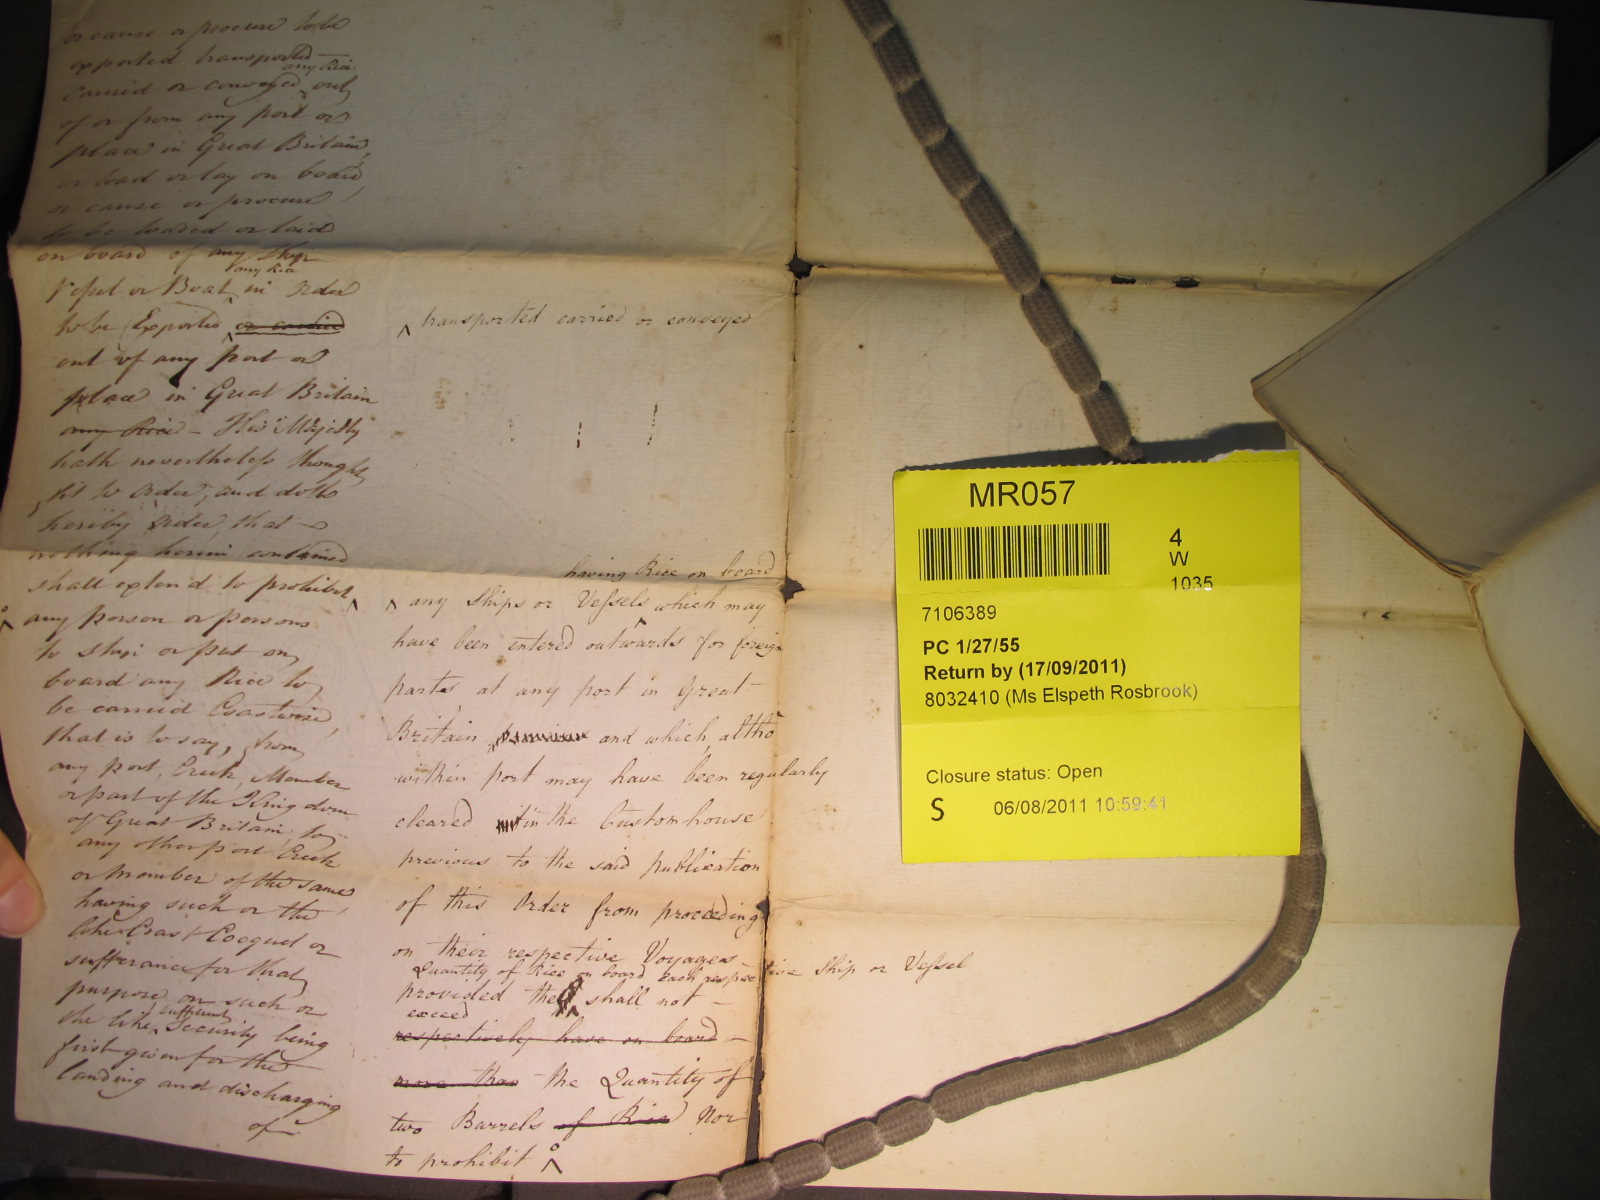 or cause or procure to be
exported transported
any Rice
carried or conveyed out
of or from any port or
place in Great Britain,
or load or lay on board
or cause or procure
to be loaded or laid
on board of any Ship
any Rice
Vessel or Boat in Order
to be Exported or carried
out of any port or
place in Great Britain
any Rice - His Majesty
hath nevertheless thought
fit to order, and doth
hereby order, that
nothing herein contained
shall extend to prohibit
any person or persons
to ship or put on
board any Rice to
be carried Coastwise,
that is to say, from
any port, Creek, Member
or part of the Kingdom
of Great Britain to
any other port Creek
or Member of the same
having such or the
like Coast Cocquet or
sufferance for that
purpose, on such or
sufficient
the like Security being
first given for the
landing and discharging
of
transported carried or conveyed
having Rice on board
any Ships or Vessels which may
have been entered outwards for foreign
parts at any port in Great
Britain and which altho
within port may have been regularly
cleared in the Customhouse
previous to the said publication
of this Order from proceeding
on their respective Voyages
Quantity of Rice on board each respective Ship or Vessel
provided the shall not
exceed
respectively have on board
more than the Quantity of
two Barrels of Rice Nor
to prohibit
MR057
4
W
1035
7106389
PC 1/27/55
Return by (17/09/2011)
8032410 (Ms Elspeth Rosbrook)
Closure status: Open
S 06/08/2011 10:59:41